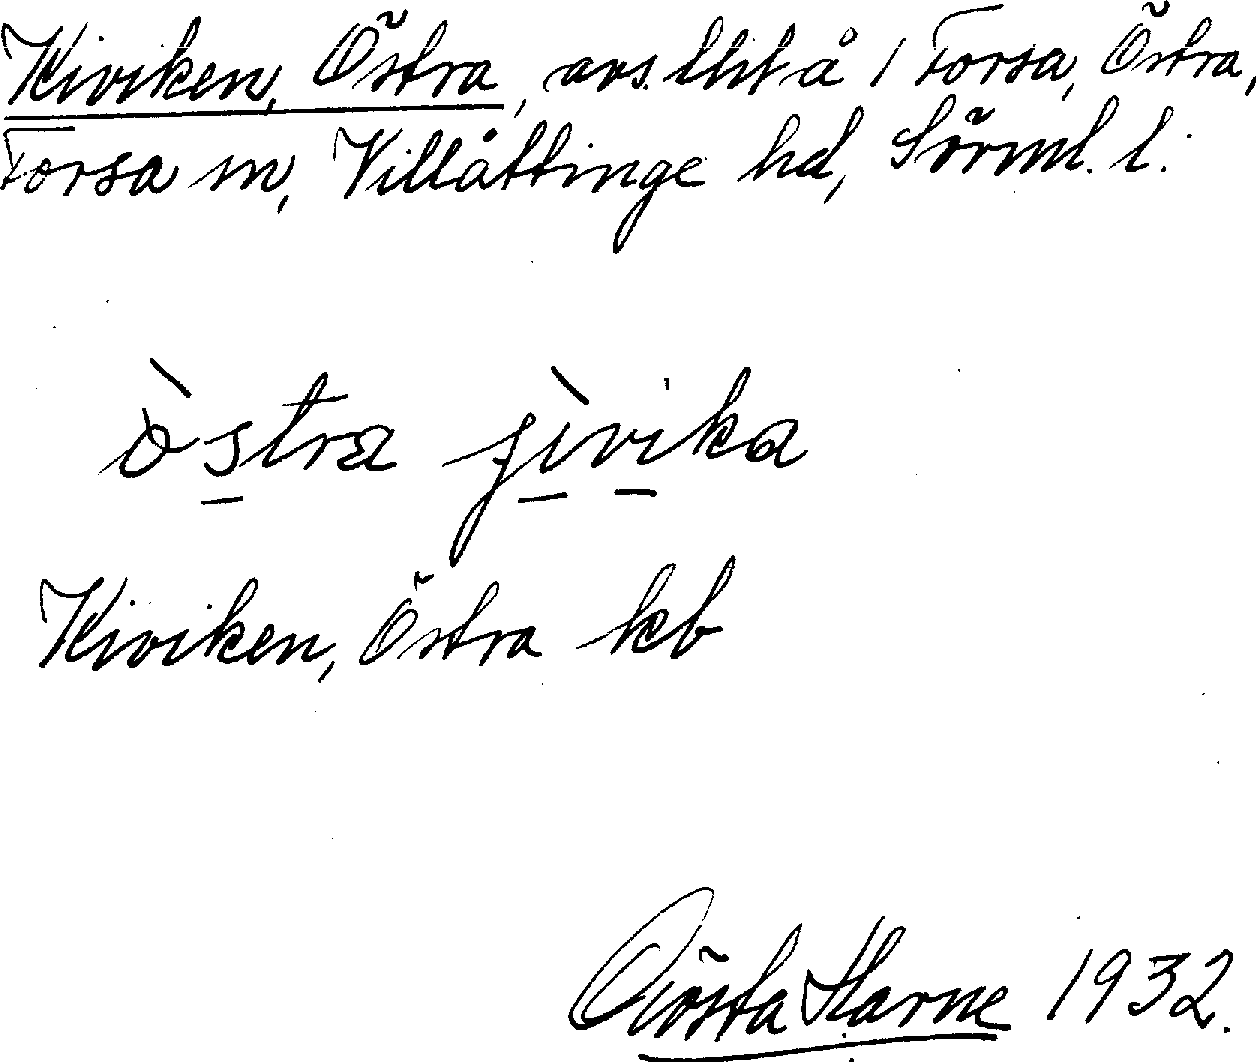 Kiviken, Östra, avs. lht å 1 Forsa, Östra,
Forsa sn, Villåttinge hd, Sörml. l.
òstra jìvika
Kiviken, Östra kb
Gösta Harne 1932.